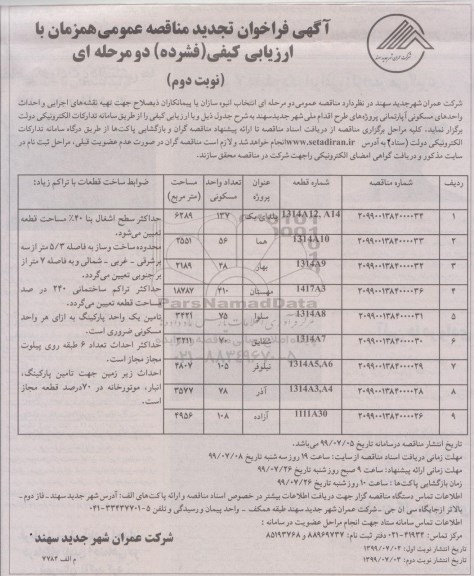 آگهی فراخوان تجدید مناقصه عمومی همزمان با
ارزیابی کیفی(فشرده) دو مرحله ای
(نوبت دوم)
شرکت عمران شهر جدید سهند
شرکت عمران شهرجدید سهند در نظردارد مناقصه عمومی‌دو مرحله ای انتخاب انبوه سازان یا پیمانکاران ذیصلاح جهت تهیه نقشه‌های اجرایی و احداث
واحدهای مسکونی آپارتمانی پروژه‌های طرح اقدام ملی شهر جدیدسهند به شرح جدول ذیل و با ارزیابی کیفی را از طریق سامانه تدارکات الکترونیکی دولت
برگزار نماید. کلیه مراحل برگزاری مناقصه از دریافت اسناد مناقصه تا ارائه پیشنهاد مناقصه گران و بازگشایی پاکت‌ها از طریق درگاه سامانه تدارکات
الکترونیکی دولت (ستاد) به آدرس www.setadiran.ir انجام خواهد شد و لازم است مناقصه گران در صورت عدم عضویت قبلی، مراحل ثبت نام در
سایت مذکور و دریافت گواهی امضای الکترونیکی راجهت شرکت در مناقصه محقق سازند.
ردیف شماره مناقصه شماره قطعه عنوان پروژه تعداد واحد مسکونی مساحت (متر مربع) ضوابط ساخت قطعات با تراکم زیاد:
۱ ۲۰۹۹۰۰۱۳۸۴۰۰۰۰۳۴ 1314A12, A14 یلدای یک ۱۳۷ ۶۲۸۹
۲ ۲۰۹۹۰۰۱۳۸۴۰۰۰۰۳۳ 1314A10 هما ۵۶ ۲۵۵۱
۳ ۲۰۹۹۰۰۱۳۸۴۰۰۰۰۳۲ 1314A9 بهار ۴۸ ۲۱۸۹
۴ ۲۰۹۹۰۰۱۳۸۴۰۰۰۰۳۶ 1417A3 مهستان ۴۱۰ ۱۸۷۸۷
۵ ۲۰۹۹۰۰۱۳۸۴۰۰۰۰۳۱ 1314A8 سلوا ۷۵ ۳۴۲۱
۶ ۲۰۹۹۰۰۱۳۸۴۰۰۰۰۳۰ 1314A7 شقایق ۷۰ ۳۲۱۱
۷ ۲۰۹۹۰۰۱۳۸۴۰۰۰۰۲۹ 1314A5,A6 نیلوفر ۱۰۵ ۴۸۰۷
۸ ۲۰۹۹۰۰۱۳۸۴۰۰۰۰۲۸ 1314A3,A4 آذر ۷۸ ۳۵۷۷
۹ ۲۰۹۹۰۰۱۳۸۴۰۰۰۰۲۶ 1111A30 آزاده ۱۰۸ ۴۹۵۶
حداکثر سطح اشغال بنا ۴۰٪ مساحت قطعه
تعیین می‌شود.
محدوده ساخت وساز به فاصله ۵/۳ متر از سه
بر شرقی - غربی - شمالی و به فاصله ۷ متر از
بر جنوبی تعیین می‌گردد.
حداکثر تراکم ساختمانی ۲۴۰ در صد
مساحت قطعه تعیین می‌گردد.
تامین یک واحد پارکینگ به ازای هر واحد
مسکونی ضروری است.
حداکثر احداث تعداد ۶ طبقه روی پیلوت
مجاز است.
احداث زیر زمین جهت تامین پارکینگ،
انبار، موتورخانه در ۷۰درصد قطعه مجاز
است.
ParsNamadData
۰۲۱-۸۸۳۴۹۶۷۰-۵
تاریخ انتشار مناقصه درسامانه تاریخ ۹۹/۰۷/۰۵ می‌باشد.
مهلت زمانی دریافت اسناد مناقصه از سایت: ساعت ۱۹ روز سه شنبه تاریخ ۹۹/۰۷/۰۸
مهلت زمانی ارائه پیشنهاد: ساعت ۹ صبح روز شنبه تاریخ ۹۹/۰۷/۲۶
زمان بازگشایی پاکت‌ها : ساعت ۱۰ روز شنبه تاریخ ۹۹/۰۷/۲۶
اطلاعات تماس دستگاه مناقصه گزار جهت دریافت اطلاعات بیشتر در خصوص اسناد مناقصه و ارائه پاکت‌های الف: آدرس شهر جدید سهند- فاز دوم -
بالاتر از جایگاه سی ان جی - شرکت عمران شهر جدید سهند طبقه همکف - واحد پیمان و رسیدگی و تلفن ۵-۳۳۴۳۷۷۰۱-۰۴۱
اطلاعات تماس سامانه ستاد جهت انجام مراحل عضویت در سامانه :
مرکز تماس: ۴۱۹۳۴-۰۲۱ دفتر ثبت نام: ۸۸۹۶۹۷۳۷ و ۸۵۱۹۳۷۶۸
تاریخ انتشار نوبت اول: ۱۳۹۹/۰۷/۰۲
تاریخ انتشار نوبت دوم: ۱۳۹۹/۰۷/۰۳
شرکت عمران شهر جدید سهند
م الف ۷۷۸۴